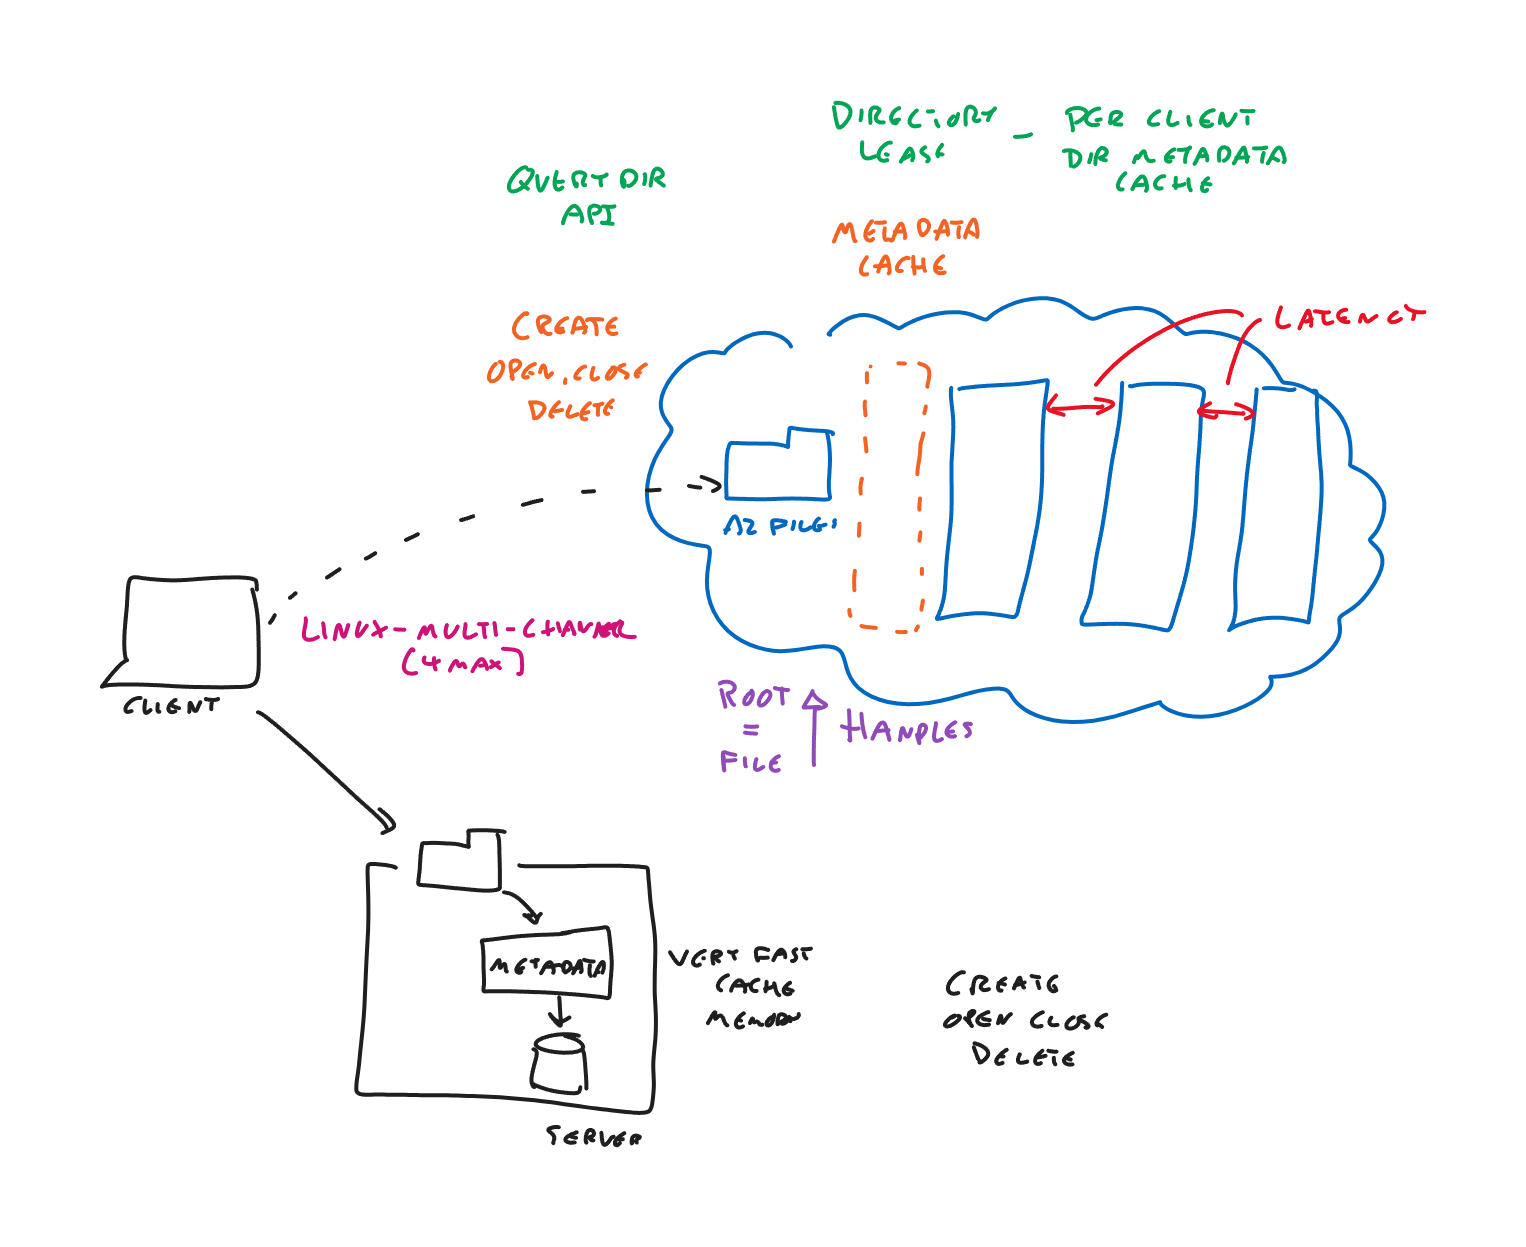 DIRECTORY
LEASE
- PER CLIENT
DIR METADATA
CACHE
QUERY DIR
API
METADATA
CACHE
CREATE
OPEN, CLOSE
DELETE
LATENCY
AZ FILES
LINUX-MULTI-CHANNEL
(4 MAX)
CLIENT
ROOT
=
FILE
HANDLES
METADATA
VERY FAST
CACHE
MEMORY
CREATE
OPEN CLOSE
DELETE
SERVER